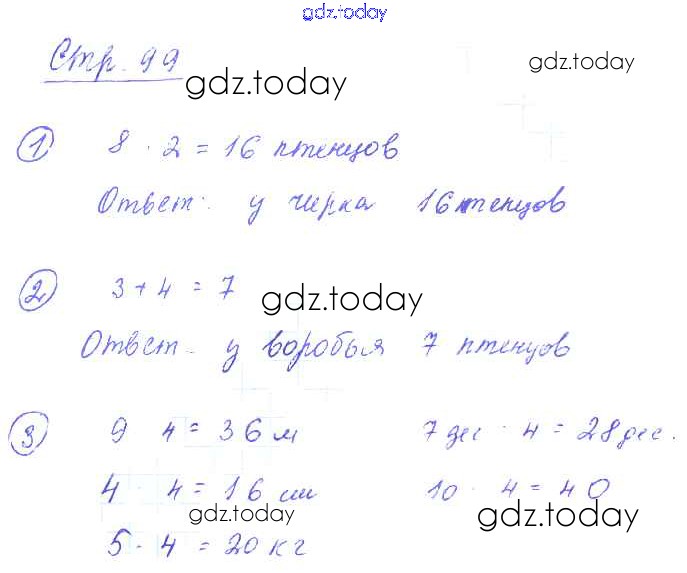 gdz.today
Стр. 99
gdz.today
gdz.today
1 8 · 2 = 16 птенцов
Ответ: у чирка 16 птенцов
2 3 + 4 = 7
gdz.today
Ответ: у воробья 7 птенцов
3 9 4 = 36 м 7 дес · 4 = 28 дес.
4 · 4 = 16 см 10 · 4 = 40
gdz.today
gdz.today
5 · 4 = 20 кг